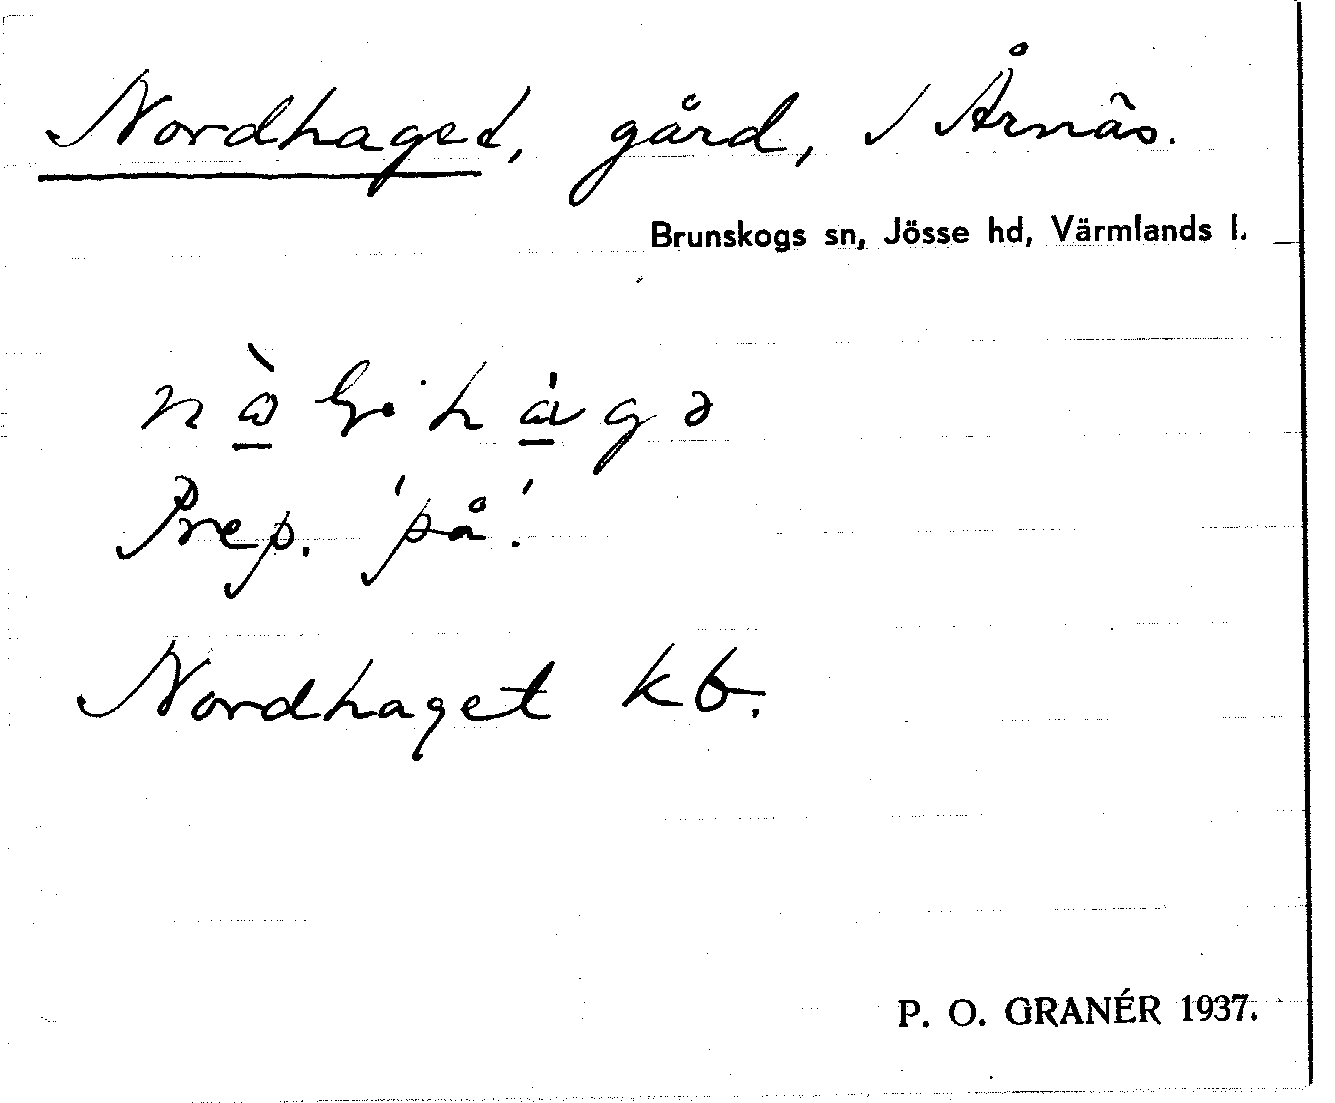 Nordhaget, gård, i Årnäs.
Brunskogs sn, Jösse hd, Värmlands l.
Prep. 'på'.
Nordhaget kb.
P. O. GRANÉR 1937.